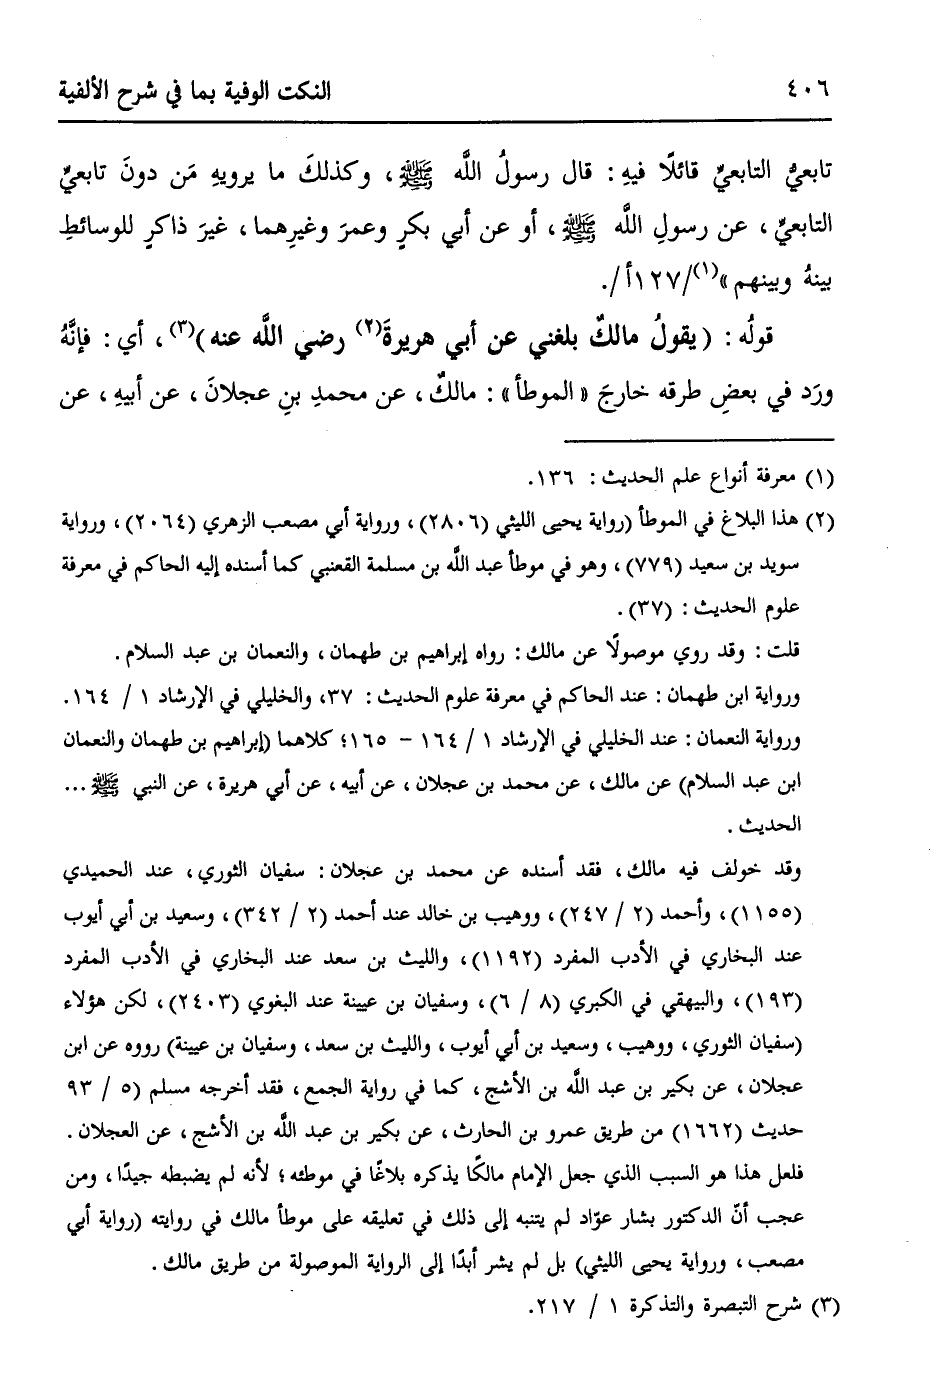 ٤٠٦ النكت الوفية بما في شرح الألفية
تابعيُّ التابعيِّ قائلًا فيهِ : قال رسولُ اللَّه ﷺ ، وكذلكَ ما يرويهِ مَن دونَ تابعيِّ
التابعيِّ ، عن رسولِ اللَّه ﷺ ، أو عن أبي بكرٍ وعمرَ وغيرِهما ، غيرَ ذاكرٍ للوسائطِ
بينهُ وبينهم »(١)/١٢٧أ/.
قولُه : (يقولُ مالكٌ بلغني عن أبي هريرةَ(٢) رضي اللَّه عنه)(٣) ، أي : فإنَّهُ
ورَد في بعضِ طرقه خارجَ « الموطأ » : مالكٌ ، عن محمدِ بنِ عجلانَ ، عن أبيهِ ، عن
(١) معرفة أنواع علم الحديث : ١٣٦.
(٢) هذا البلاغ في الموطأ (رواية يحيى الليثي (٢٨٠٦) ، ورواية أبي مصعب الزهري (٢٠٦٤) ، ورواية
سويد بن سعيد (٧٧٩) ، وهو في موطأ عبد اللَّه بن مسلمة القعنبي كما أسنده إليه الحاكم في معرفة
علوم الحديث : (٣٧) .
قلت : وقد روي موصولًا عن مالك : رواه إبراهيم بن طهمان ، والنعمان بن عبد السلام .
ورواية ابن طهمان : عند الحاكم في معرفة علوم الحديث : ٣٧، والخليلي في الإرشاد ١ / ١٦٤.
ورواية النعمان : عند الخليلي في الإرشاد ١ / ١٦٤ – ١٦٥؛ كلاهما (إبراهيم بن طهمان والنعمان
ابن عبد السلام) عن مالك ، عن محمد بن عجلان ، عن أبيه ، عن أبي هريرة ، عن النبي ﷺ ...
الحديث .
وقد خولف فيه مالك ، فقد أسنده عن محمد بن عجلان : سفيان الثوري ، عند الحميدي
(١١٥٥) ، وأحمد (٢ / ٢٤٧) ، ووهيب بن خالد عند أحمد (٢ / ٣٤٢) ، وسعيد بن أبي أيوب
عند البخاري في الأدب المفرد (١١٩٢) ، والليث بن سعد عند البخاري في الأدب المفرد
(١٩٣) ، والبيهقي في الكبري (٨ / ٦) ، وسفيان بن عيينة عند البغوي (٢٤٠٣) ، لكن هؤلاء
(سفيان الثوري ، ووهيب ، وسعيد بن أبي أيوب ، والليث بن سعد ، وسفيان بن عيينة) رووه عن ابن
عجلان ، عن بكير بن عبد اللَّه بن الأشج ، كما في رواية الجمع ، فقد أخرجه مسلم (٥ / ٩٣
حديث (١٦٦٢) من طريق عمرو بن الحارث ، عن بكير بن عبد اللَّه بن الأشج ، عن العجلان .
فلعل هذا هو السبب الذي جعل الإمام مالكًا يذكره بلاغًا في موطئه ؛ لأنه لم يضبطه جيدًا ، ومن
عجب أنّ الدكتور بشار عوّاد لم يتنبه إلى ذلك في تعليقه على موطأ مالك في روايته (رواية أبي
مصعب ، ورواية يحيى الليثي) بل لم يشر أبدًا إلى الرواية الموصولة من طريق مالك .
(٣) شرح التبصرة والتذكرة ١ / ٢١٧.